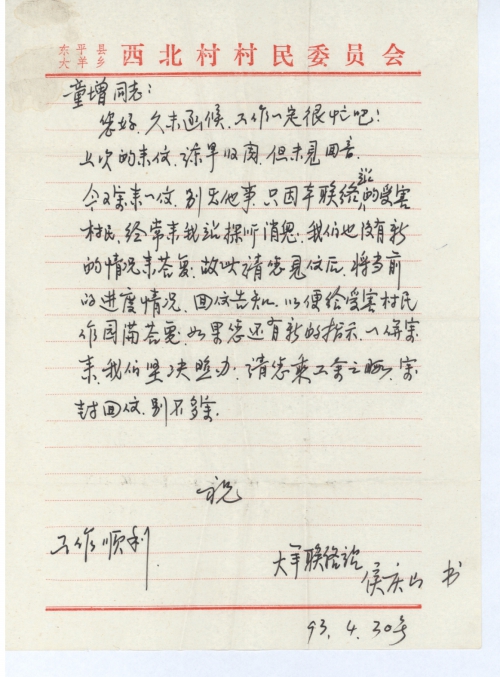 东平县大羊乡 西北村村民委员会
童增同志:
您好,久未函候,工作一定很忙吧!
上次的来信,谅早收阅,但未见回音.
今又寄来一信,别无他事,只因本联络站的受害
村民,经常来我站探听消息;我们也没有新
的情况来答复;故此请您见信后,将当前
的进度情况,回信告知,以便给受害村民
作园满答复.如果您还有新的指示,一併寄
来,我们坚决照办;请您乘工余之暇,寄
封回信,别不多写.
祝
工作顺利
大羊联络站
侯庆山 书
93.4.30号